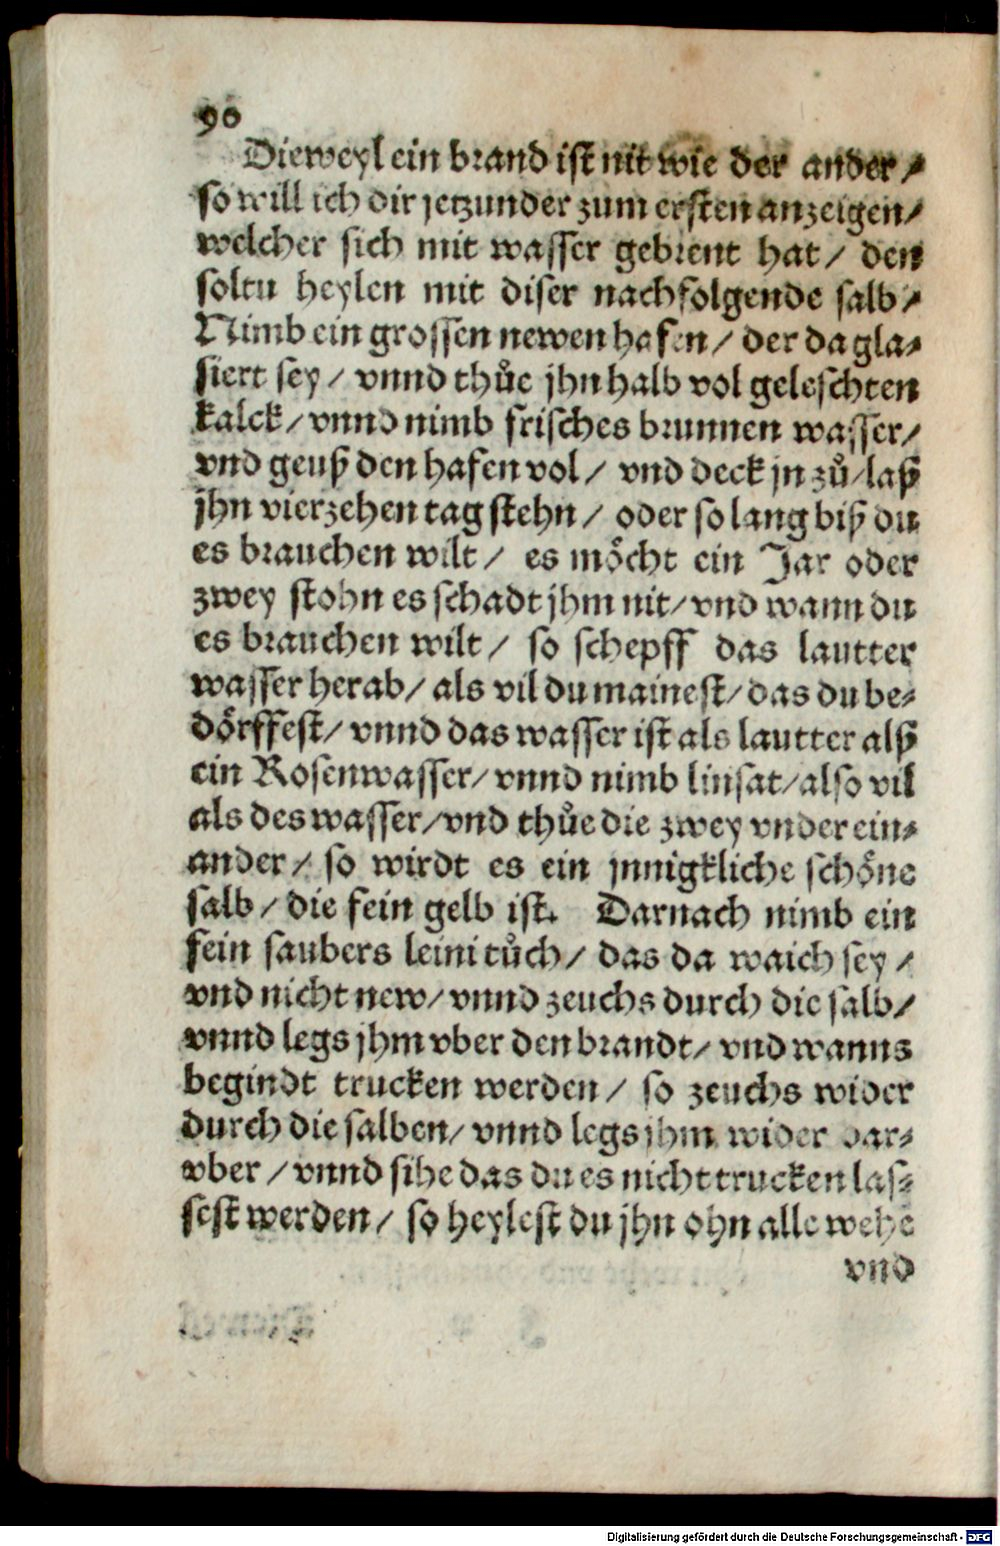 90
Dieweyl ein brand ist nit wie der ander /
so will ich dir jetzunder zum ersten anzeigen /
welcher sich mit wasser gebrent hat / den
soltu heylen mit diser nachfolgende salb /
Nimb ein grossen newen hafen / der da gla-
siert sey / vnnd thůe jhn halb vol geleschten
kalck / vnnd nimb frisches brunnen wasser /
vnd geuß den hafen vol / vnd deck jn zů / laß
jhn vierzehen tag stehn / oder so lang biß du
es brauchen wilt / es möcht ein Jar oder
zwey stohn es schadt jhm nit / vnd wann du
es brauchen wilt / so schepff das lautter
wasser herab / als vil du mainest / das du be-
dörffest / vnnd das wasser ist als lautter alß
ein Rosenwasser / vnnd nimb linsat / also vil
als des wasser / vnd thůe die zwey vnder ein-
ander / so wirdt es ein jnnigkliche schöne
salb / die fein gelb ist. Darnach nimb ein
fein saubers leini tůch / das da waich sey /
vnd nicht new / vnnd zeuchs durch die salb /
vnnd legs jhm vber den brandt / vnd wanns
begindt trucken werden / so zeuchs wider
durch die salben / vnnd legs jhm wider dar-
vber / vnnd sihe das du es nicht trucken las-
sest werden / so heylest du jhn ohn alle wehe
vnd
Digitalisierung gefördert durch die Deutsche Forschungsgemeinschaft - DFG